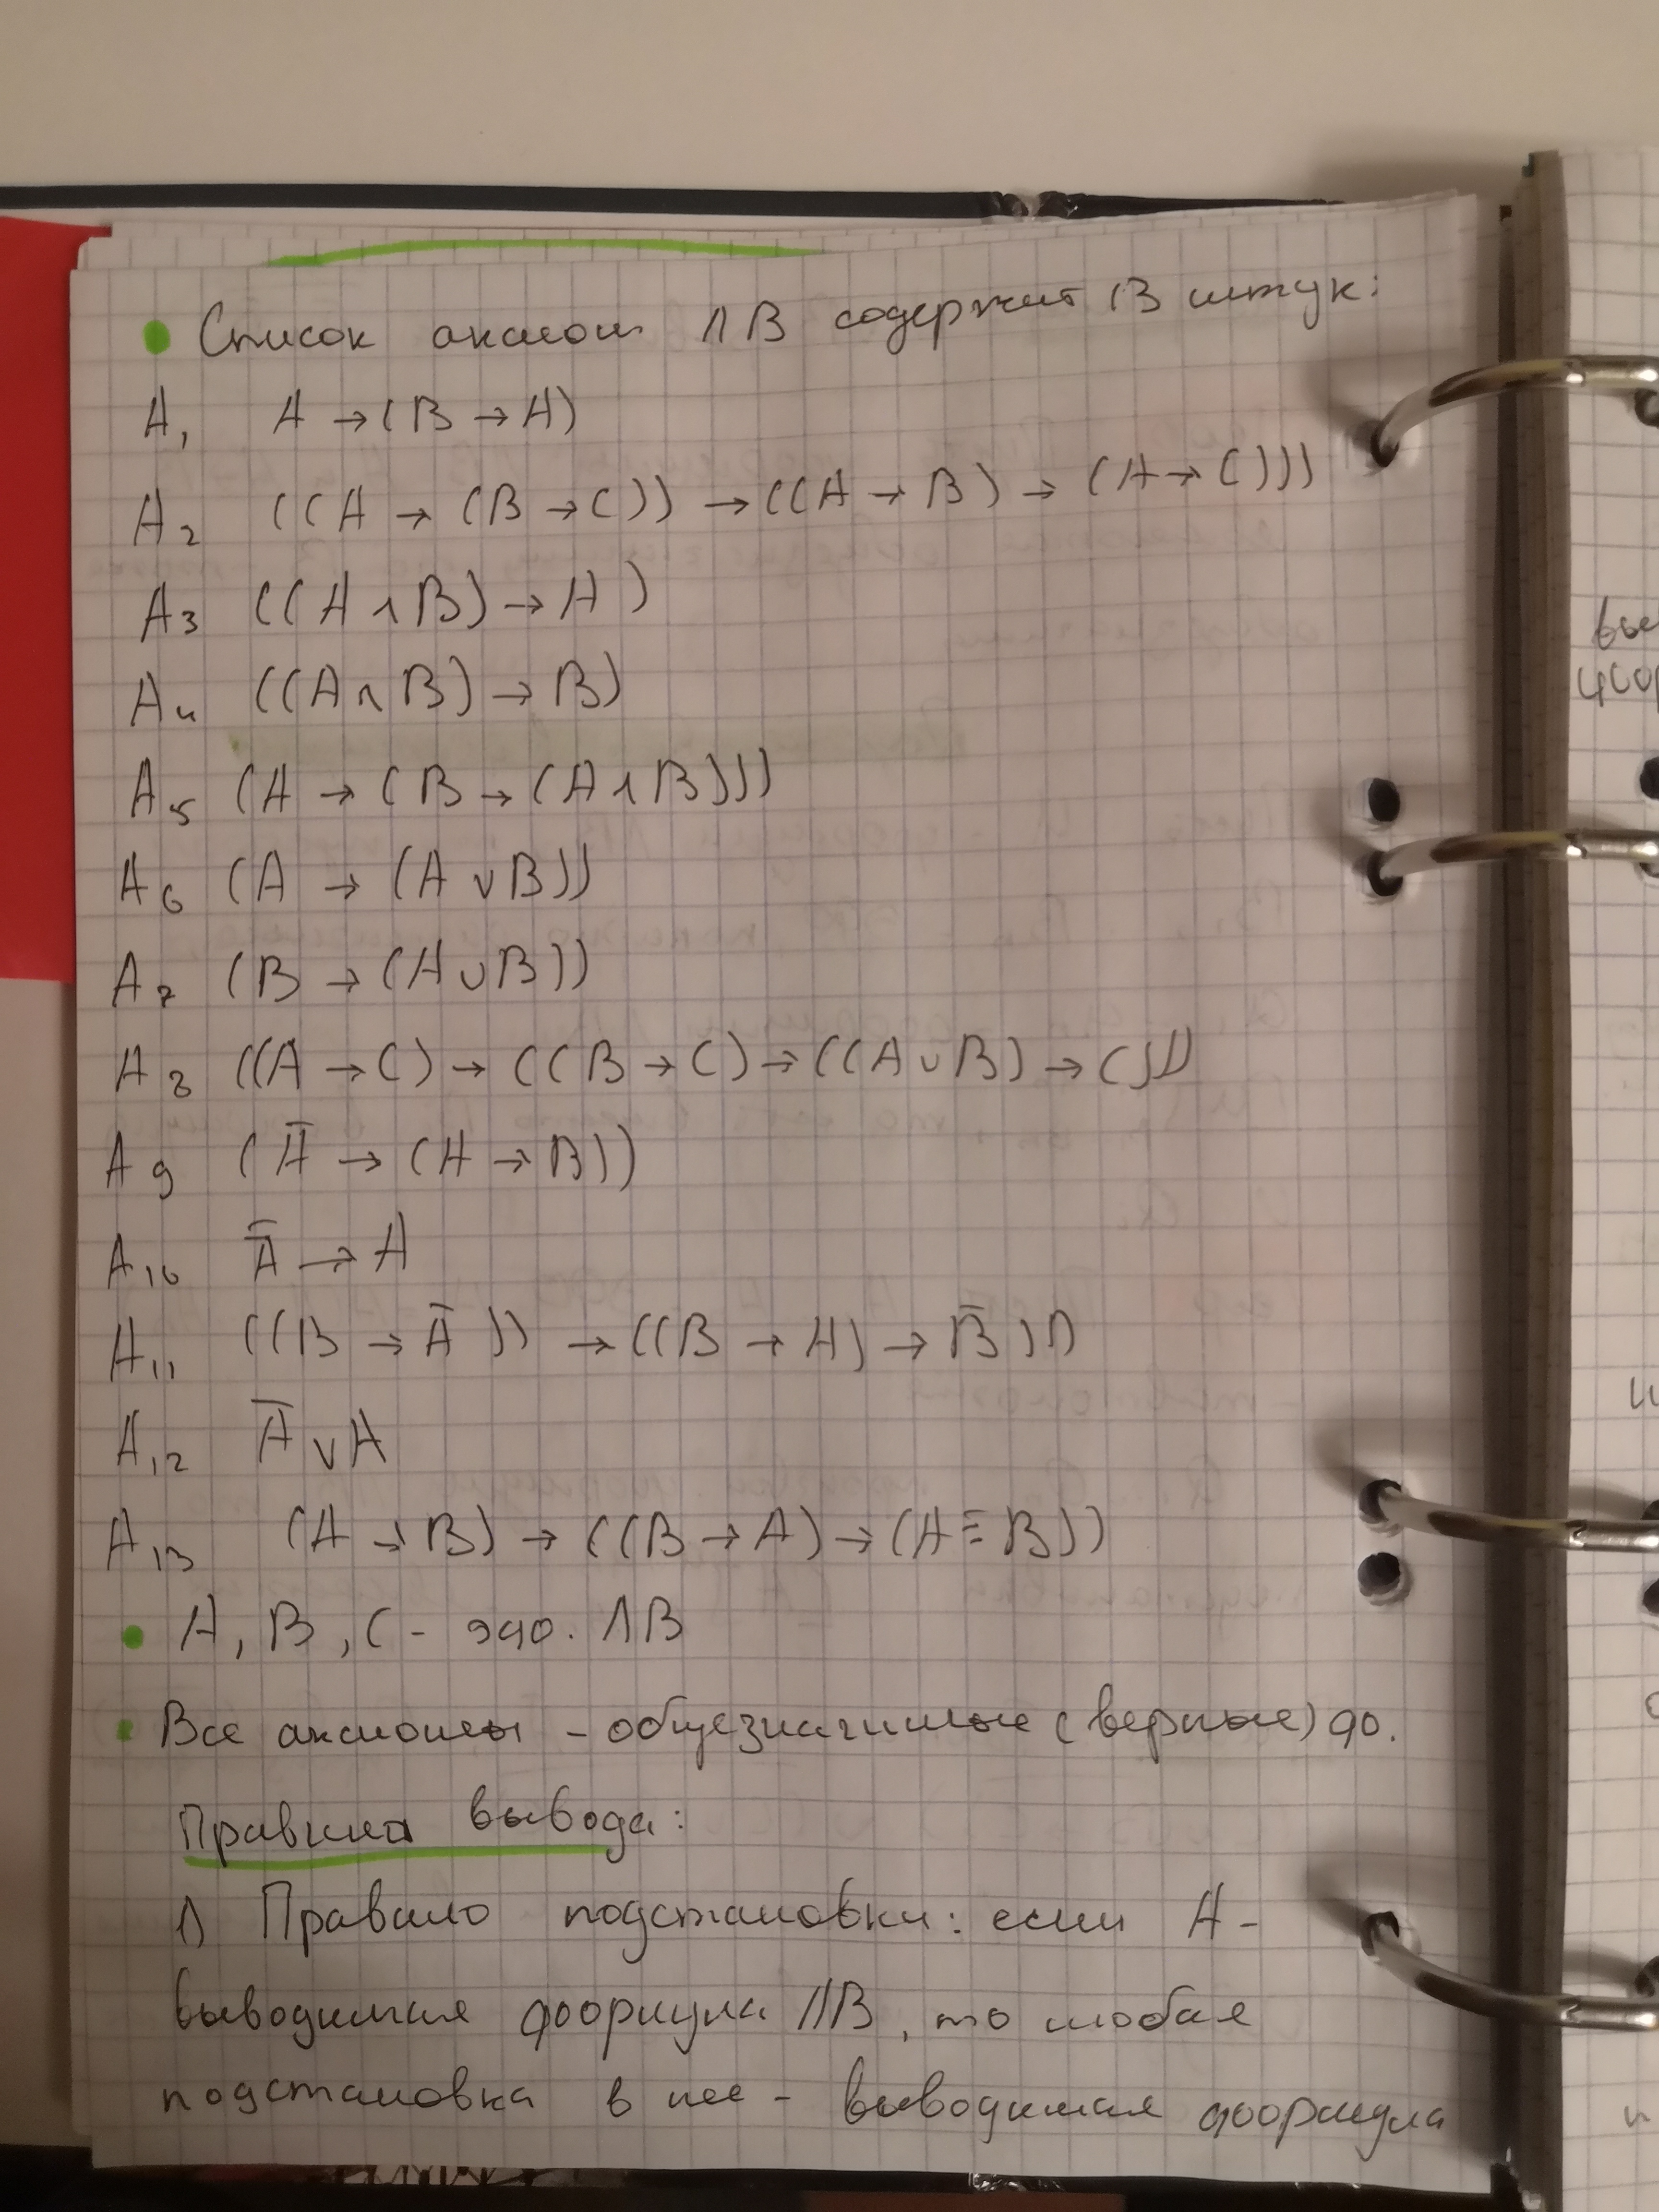 • Список аксиом ЛВ содержит 13 штук:
A₁ A → (B → A)
A₂ ((A → (B → C)) → ((A → B) → (A → C)))
A₃ ((A ∧ B) → A)
A₄ ((A ∧ B) → B)
A₅ (A → (B → (A ∧ B)))
A₆ (A → (A ∨ B))
A₇ (B → (A ∨ B))
A₈ ((A → C) → ((B → C) → ((A ∨ B) → C)))
A₉ (A̅ → (A → B))
A₁₀ A̿ → A
A₁₁ ((B → A̅)) → ((B → A) → B̅)))
A₁₂ A̅ ∨ A
A₁₃ (A → B) → ((B → A) → (A ≡ B))
• A, B, C - эфо. ЛВ
• Все аксиомы - общезначимые (верные) фо.
Правила вывода:
1) Правило подстановки: если A -
выводимая формула ЛВ, то любая
подстановка в нее - выводимая формула